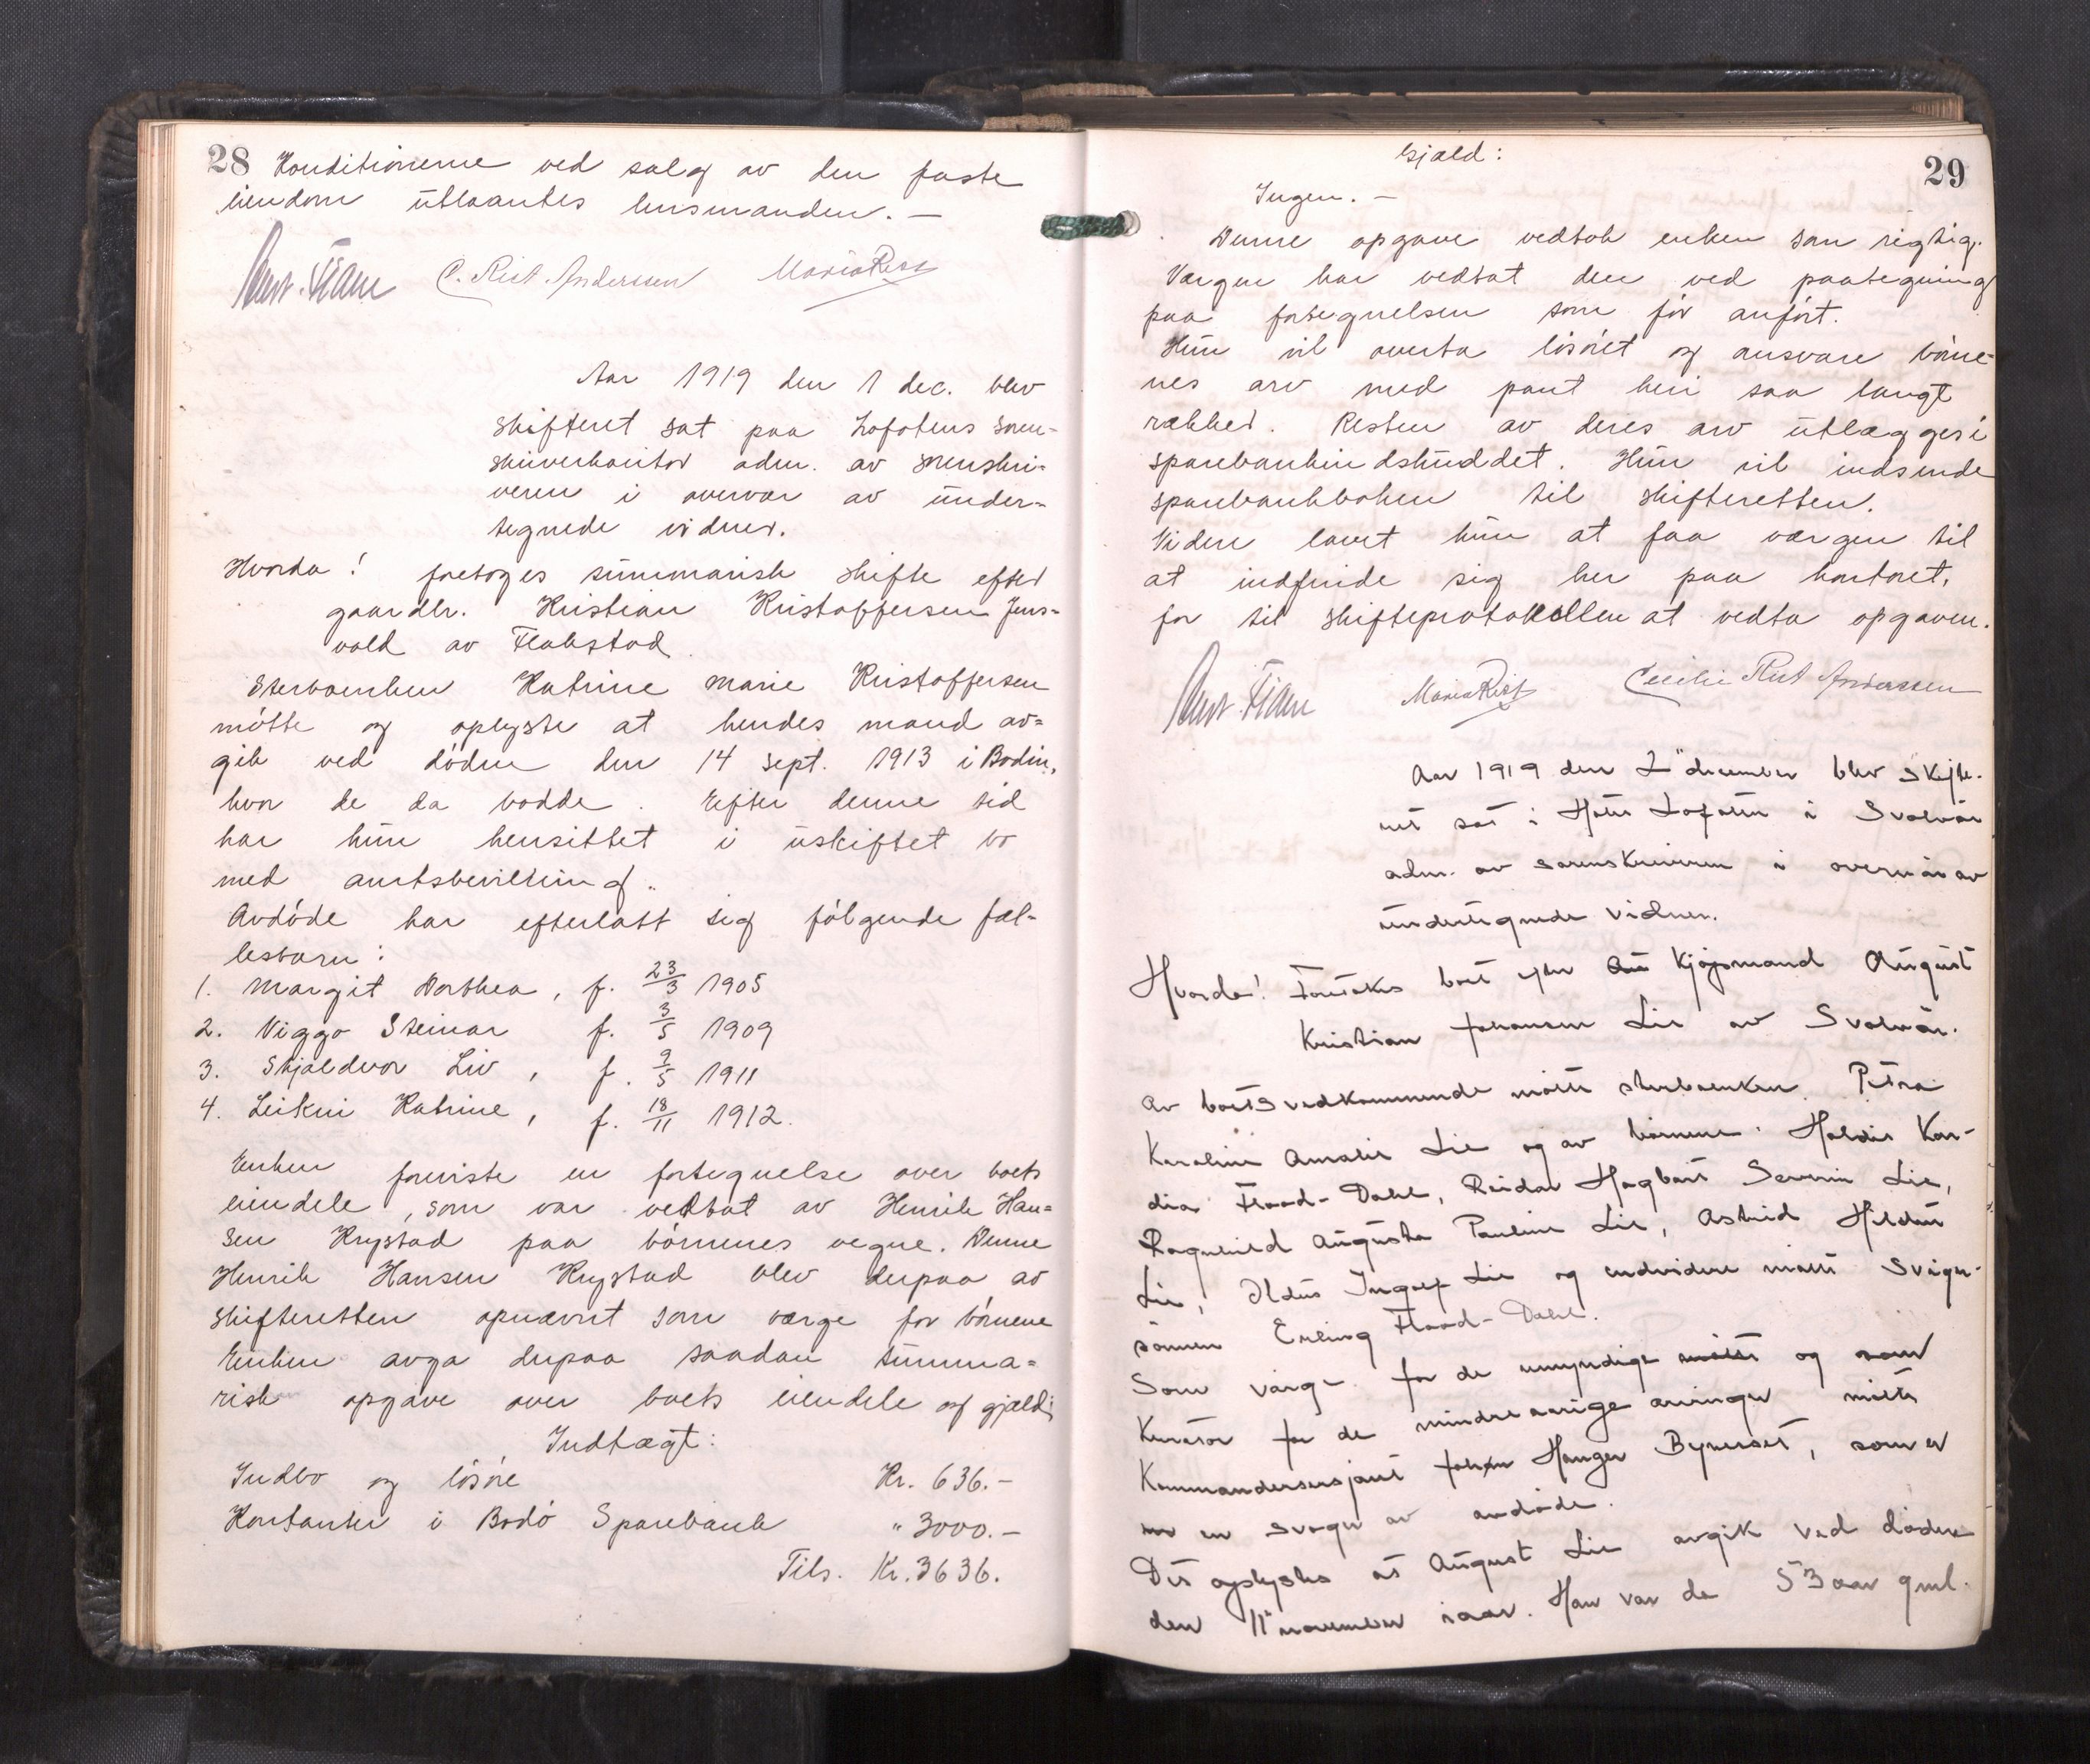 28 Konditionerne ved salg av den faste
eiendom utlaantes lensmanden. —
C. Rist Anderssen Maria Rist
Aar 1919 den 1 dec. blev
skifteret sat paa Lofotens soren-
skriverkontor adm. av sorenskri-
veren i overvær av under-
tegnede vidner.
Hvorda! foretoges summarisk skifte efter
gaardbr. Kristian Kristoffersen Jens-
vold av Flakstad.
Sterboenken Katrine Marie Kristoffersen
møtte og oplyste at hendes mand av-
gik ved døden den 14 sept. 1913 i Bodin,
hvor de da bodde. Efter denne tid
har hun hensittet i uskiftet bo
med amtsbevilling.
Avdøde har efterlatt sig følgende fæl-
lesbarn:
1. Margit Dorthea, f. 23/3 1905
2. Viggo Steinar f. 3/5 1909
3. Skjaldvor Liv, f. 9/5 1911
4. Leikni Katrine, f. 18/11 1912.
Enken foreviste en fortegnelse over boets
eiendele, som var vedtat av Henrik Han-
sen Krystad paa børnenes vegne. Denne
Henrik Hansen Krystad blev derpaa av
skifteretten opnævnt som værge for børnene
Enken avga derpaa saadan summa-
risk opgave over boets eiendele og gjeld:
Indtægt:
Indbo og løsøre Kr. 636.—
Kontanter i Bodø Sparebank " 3000.—
Tils. Kr. 3636.
Gjæld: 29
Ingen. —
Denne opgave vedtok enken som rigtig.
Værgen har vedtat den ved paategning
paa fortegnelsen som før anført.
Hun vil overta løsøret og ansvare børne-
nes arv med pant heri saa langt
rækker. Resten av deres arv utlægges i
sparebankindskuddet. Hun vil indsende
sparebankboken til skifteretten.
Videre lovet hun at faa værgen til
at indfinde sig her paa kontoret,
for til skifteprotokollen at vedta opgaven.
Maria Rist Cecilie Rist Anderssen
Aar 1919 den 2" december blev skifte-
ret sat i Hotel Lofoten i Svolvær
adm. av sorenskriveren i overvær av
undertegnede vidner.
Hvorda! Foretokes boet efter Kjøpmand August
Kristian Johansen Lie av Svolvær.
Av boets vedkommende møtte sterboenken Petra
Karoline Amalie Lie og av børnene: Haldis Kon-
dia Flood-Dahl, Reidar Hagbart Severin Lie,
Ragnhild Augusta Pauline Lie, Astrid Hildur
Lie, Ingolf Lie og endvidere møtte sviger-
sønnen Erling Flood-Dahl.
Som værge for de umyndige møtte og som
Kurator for de mindreaarige arvinger møtte
Kommandersersjant Johan Hanger Bynerset, som er
en svoger av avdøde.
Det oplystes at August Lie avgik ved døden
den 11te november iaar. Han var da 53 aar gml.